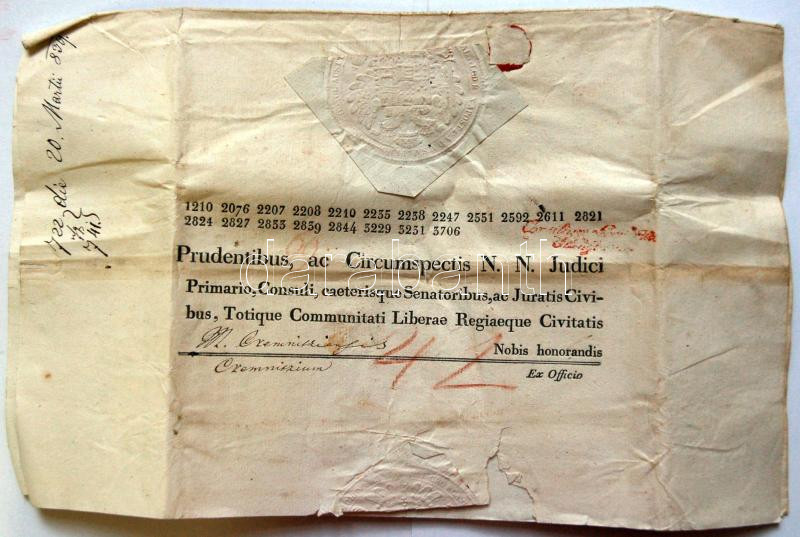 722 die 20. Martii 839.
1210 2076 2207 2208 2210 2235 2238 2247 2551 2592 2611 2821
2824 2827 2833 2839 2844 3229 3231 3706
Prudentibus, ac Circumspectis N. N. Judici
Primario, Consuli, caeterisque Senatoribus, ac Juratis Civi-
bus, Totique Communitati Liberae Regiaeque Civitatis
M. Cremniziensis
Nobis honorandis
Cremnizium
Ex Officio
darabanth